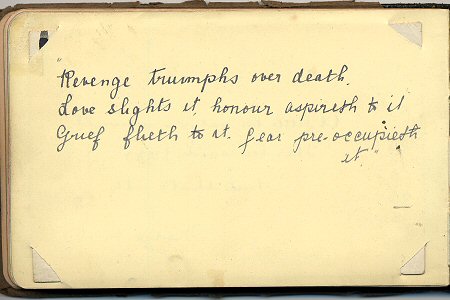 "Revenge triumphs over death,
Love slights it, honour aspireth to it
Grief flieth to it. fear pre-occupieth
it."